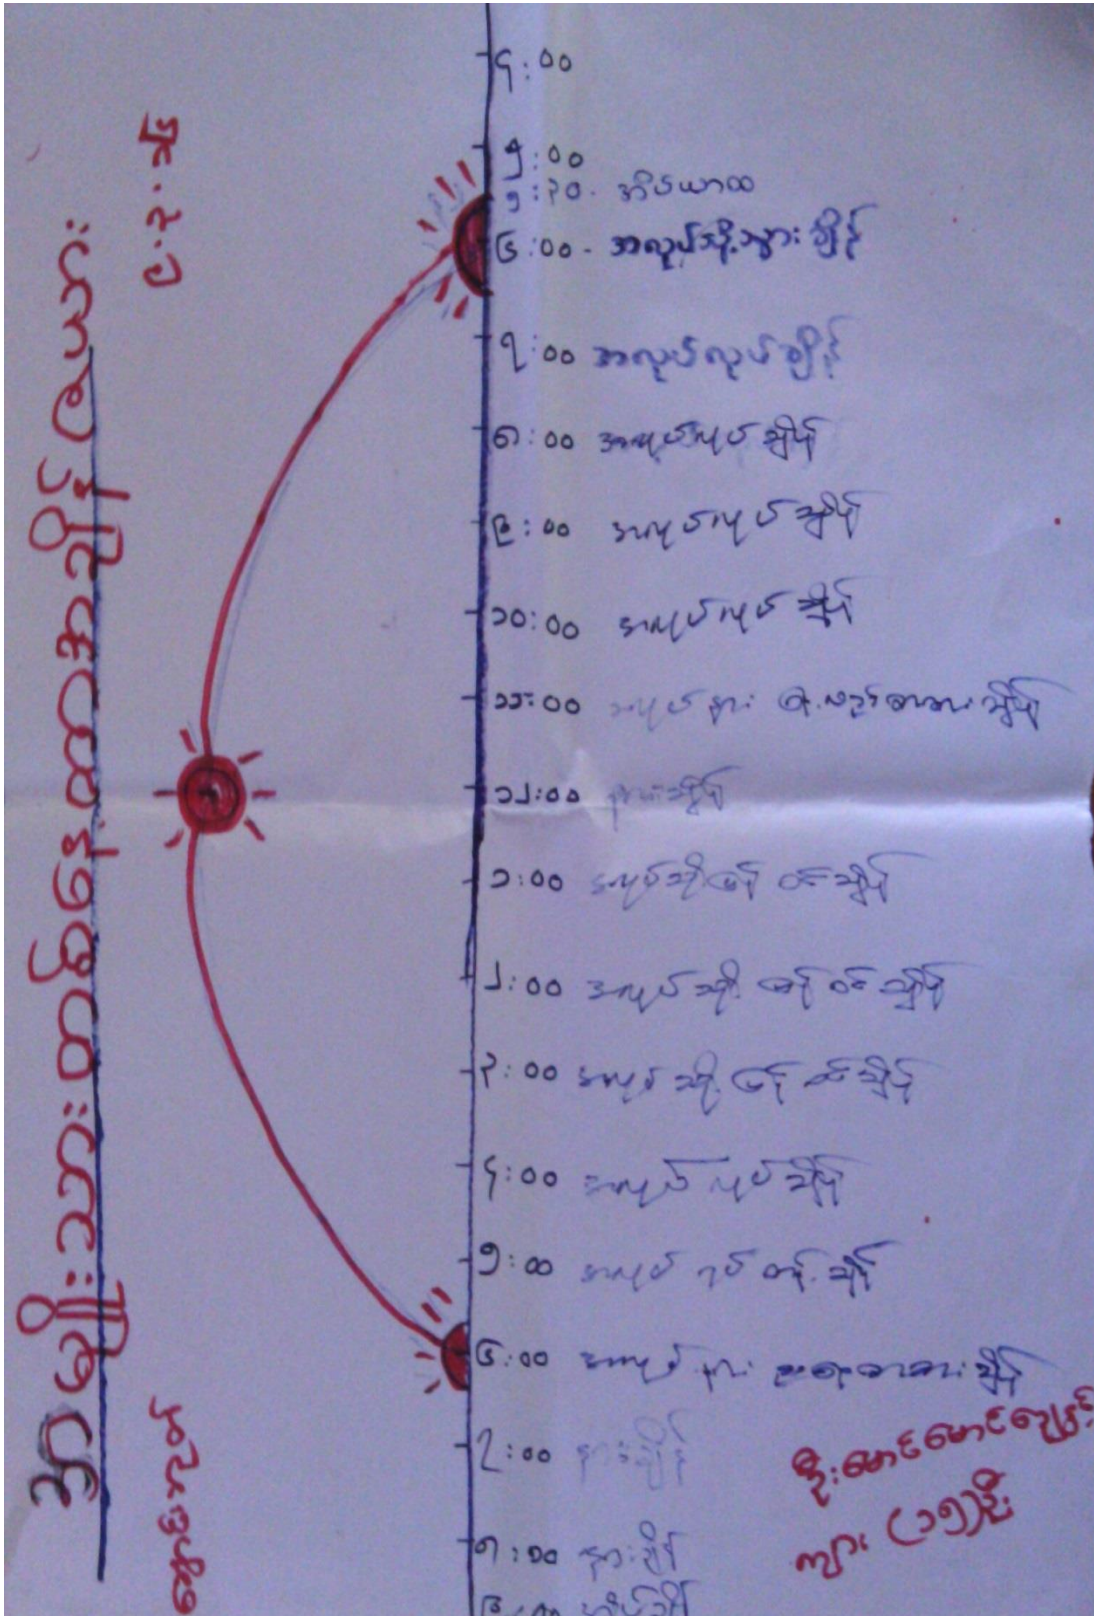 အမျိုးသားတစ်နေ့တာအချိန်ဇယား
၄:၀၀
၅:၀၀
၅:၃၀. အိပ်ယာထ
၆:၀၀. အလုပ်သို့သွားချိန်
၇:၀၀ အလုပ်လုပ်ချိန်
၈:၀၀ အလုပ်လုပ်ချိန်
၉:၀၀ အလုပ်လုပ်ချိန်
၁၀:၀၀ အလုပ်လုပ်ချိန်
၁၁:၀၀ အလုပ်နား နေ့လည်စာစားချိန်
၁၂:၀၀ နားချိန်
၁:၀၀ အလုပ်သို့ပြန်ဝင်ချိန်
၂:၀၀ အလုပ်သို့ ပြန်ဝင်ချိန်
၃:၀၀ အလုပ်သို့ ပြန်ဝင်ချိန်
၄:၀၀ အလုပ်လုပ်ချိန်
၅:၀၀ အလုပ်
၆:၀၀ အလုပ်နား ညနေစာစားချိန်
၇:၀၀ နားချိန်
၈:၀၀ နားချိန်
၉:၀၀ အိပ်ချိန်
ဦးမောင်မောင်
ကျား (၁၅)ဦး